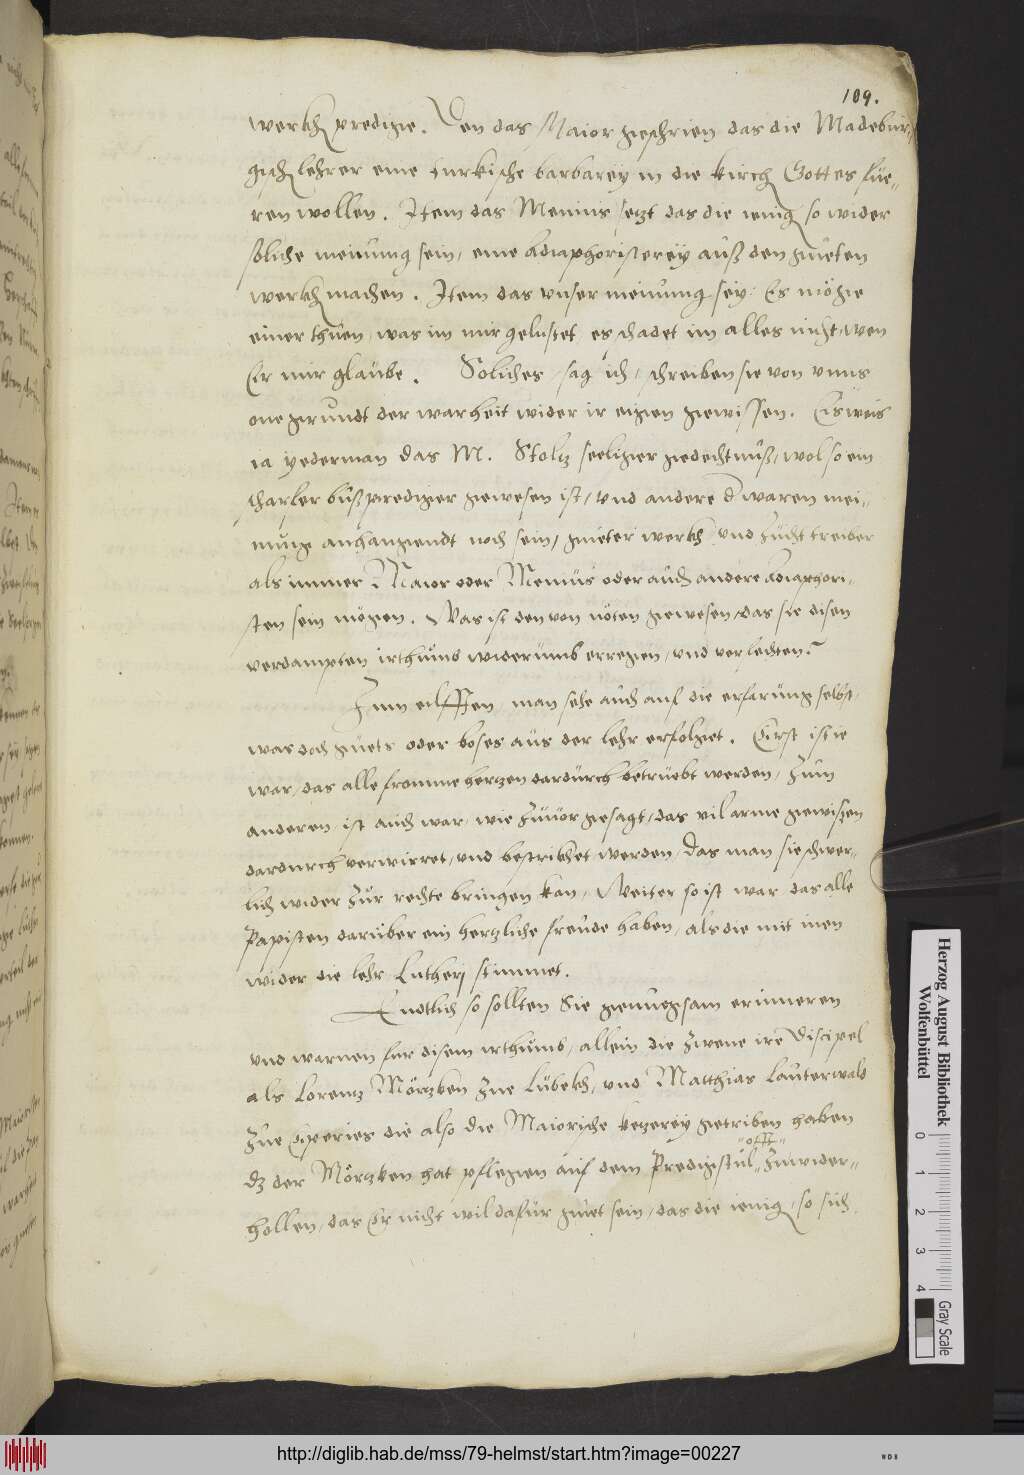 109.
werkh predigie. Den das Maior geschrien das die Madebur,,
gisch lehrer eine turkische barbarey in die kirch Gottes füe,,
ren wollen. Item das Menius setzt das die ienig so wider
soliche meinung sein, eine Adiaphoristerey auß den gueten
werkh machen. Item das vnser meinung sey: Es möge
einer thuen, was im nur gelustet es schadet im alles nicht, wen
Er nur glaube. Soliches, sag ich, schreiben sie von vnns
one grundt der warheit wider ir eigen gewissen. Es weis
ia yederman das M. Stoltz seeliger gedechtnuß, wol so ein
scharfer bußprediger gewesen ist, vnd andere d waren mei,,
nung anhangendt noch sein, gueter werkh vnd zücht treiber
als immer Maior oder Menius oder auch andere Adiaphori,,
sten sein mögen. Was ist den von nöten gewesen, das sie disen
verdampten irthumb widerumb erregen, vnd verfechten?
Zum eilfften man sehe auch auf die erfarung selbst,
was doch guets oder boses aus der lehr erfolget. Erst ist ie
war, das alle fromme hertzen dardurch betruebt werden, Zum
anderen ist auch war, wie zuuor gesagt, das vil arme gewissen
dardurch verwirret, vnd bestrikhet werden, das man sie schwer,,
lich wider zur rechte bringen kan, Weiter so ist war das alle
Papisten darüber ein hertzliche freude haben, als die mit inen
wider die lehr Lutherj stimmet.
Endtlich so sollten Sie genuegsam erinneren
vnd warnen fur disem irthumb, allein die zwene ire Discipel
als Lorentz Mörtzken zue Lübekh, vnd Matthias Lauterwald
zue Eperies die also die Maiorische ketzerey getriben haben
dz der Mörtzken hat pflegen auf dem Predigstul ,,offt,, zuwider,,
hollen, das Er nicht wil dafür guet sein, das die ienig, so sich
Herzog August Bibliothek
Wolfenbüttel
0 1 2 3 4
Gray Scale
http://diglib.hab.de/mss/79-helmst/start.htm?image=00227